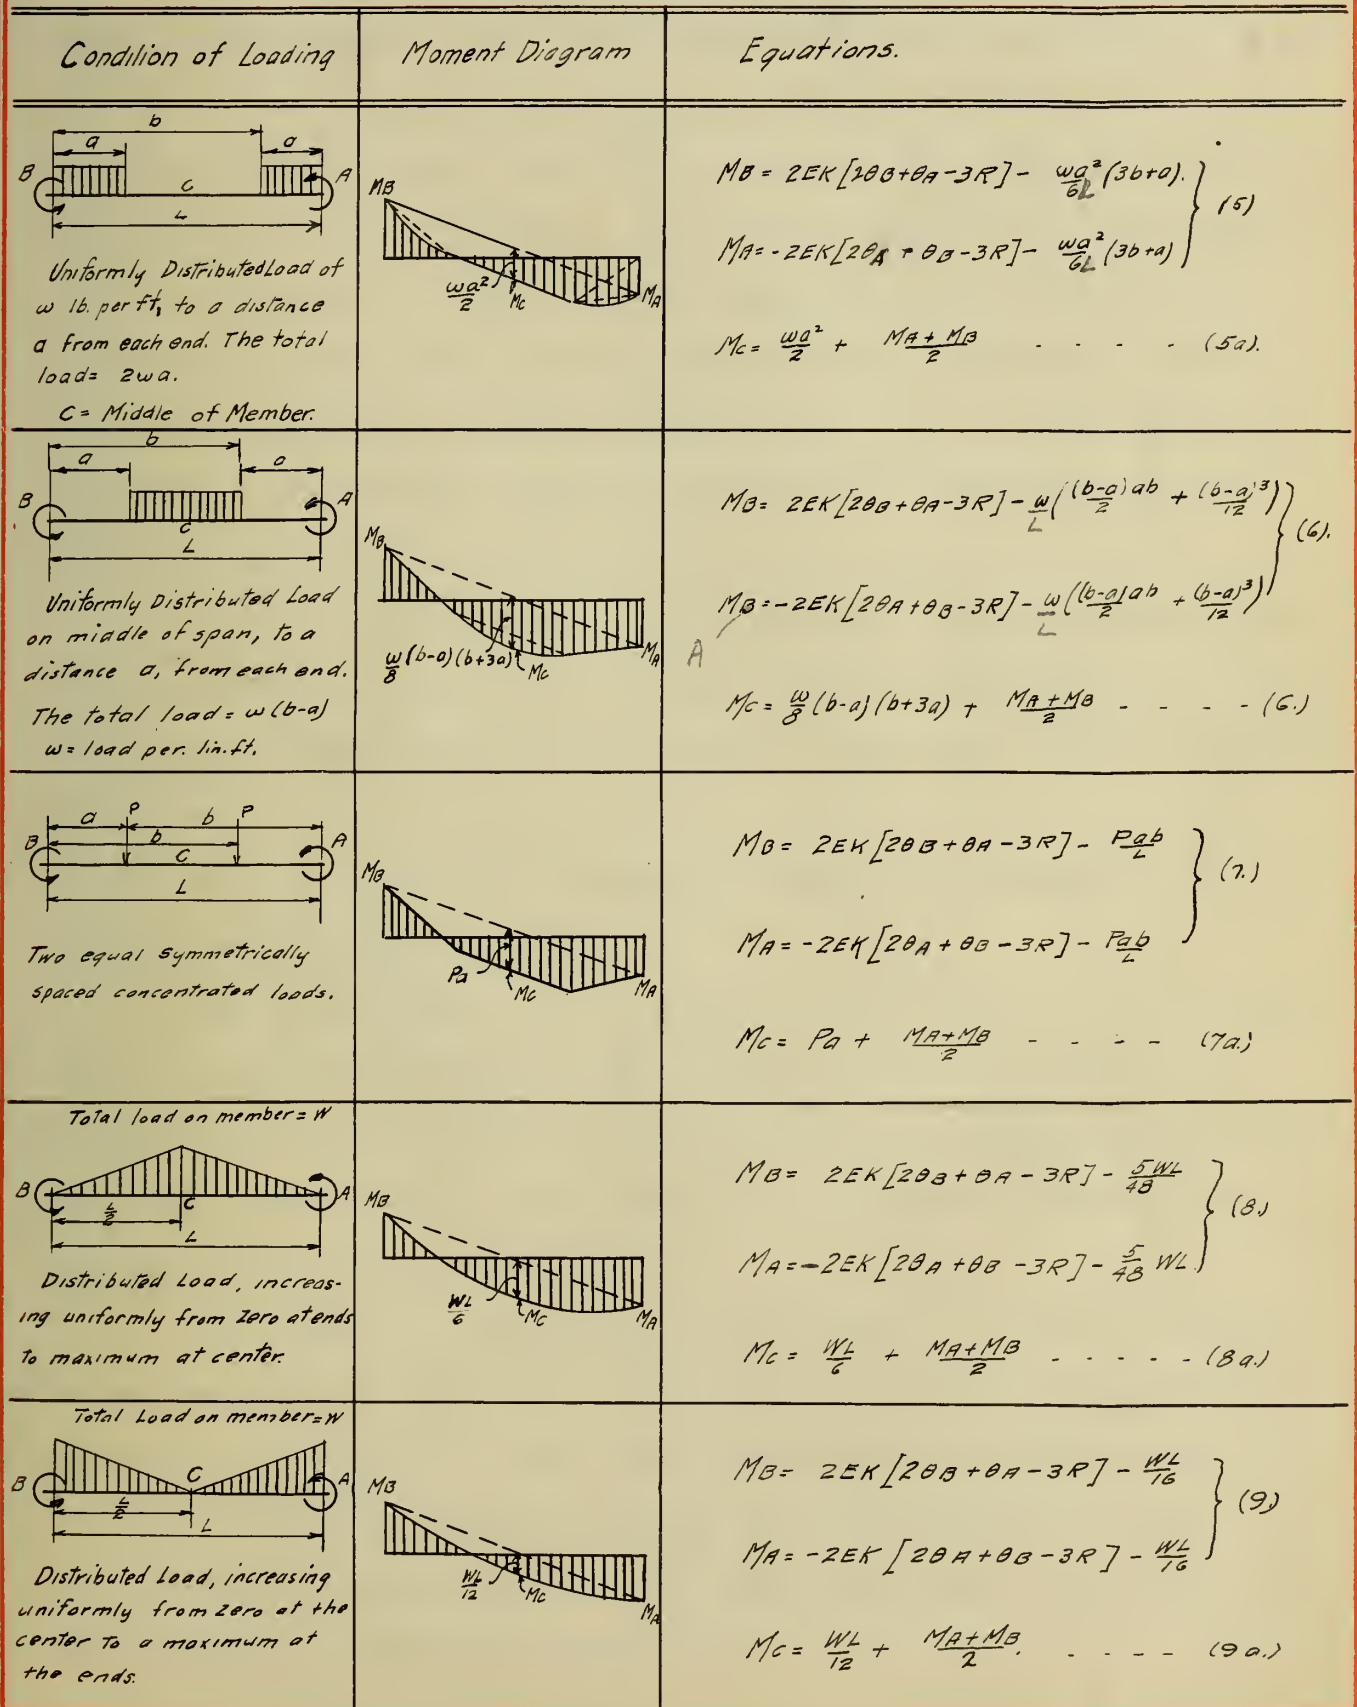 Condition of Loading
Moment Diagram
Equations.
b
a
a
B
A
C
L
Uniformly Distributed Load of
w lb. per ft, to a distance
a from each end. The total
load= 2wa.
C= Middle of Member.
MB
wa²/2
MC
MA
MB = 2EK[2θB+θA-3R] - wa²/6L (3b+a).
(5)
MA = -2EK[2θA + θB-3R] - wa²/6L (3b+a)
MC = wa²/2 + MA + MB/2 - - - - (5a).
b
a
a
B
A
C
L
Uniformly Distributed Load
on middle of span, to a
distance a, from each end.
The total load = w(b-a)
w= load per. lin. ft.
MB
w/8 (b-a)(b+3a)
MC
MA
MB= 2EK[2θB+θA-3R] - w/L ((b-a)ab/2 + (b-a)³/12)
(6).
MB = -2EK[2θA+θB-3R] - w/L ((b-a)ab/2 + (b-a)³/12)
A
MC = w/8 (b-a)(b+3a) + MA+MB/2 - - - - (6.)
P
P
a
b
b
B
A
C
L
Two equal symmetrically
spaced concentrated loads.
MB
Pa
MC
MA
MB= 2EK[2θB+θA-3R] - Pab/L
(7.)
MA = -2EK[2θA+θB-3R] - Pab/L
MC= Pa + MA+MB/2 - - - - (7a.)
Total load on member= W
B
A
C
L/2
L
Distributed Load, increas-
ing uniformly from Zero at ends
to maximum at center.
MB
WL/6
MC
MA
MB= 2EK[2θB+θA-3R] - 5WL/48
(8.)
MA=-2EK[2θA+θB-3R] - 5/48 WL.
MC= WL/6 + MA+MB/2 - - - - - (8a.)
Total Load on member=W
B
C
A
L/2
L
Distributed Load, increasing
uniformly from Zero at the
center to a maximum at
the ends.
MB
WL/12
MC
MA
MB= 2EK[2θB+θA-3R] - WL/16
(9.)
MA=-2EK[2θA+θB-3R] - WL/16
MC= WL/12 + MA+MB/2. - - - - (9a.)